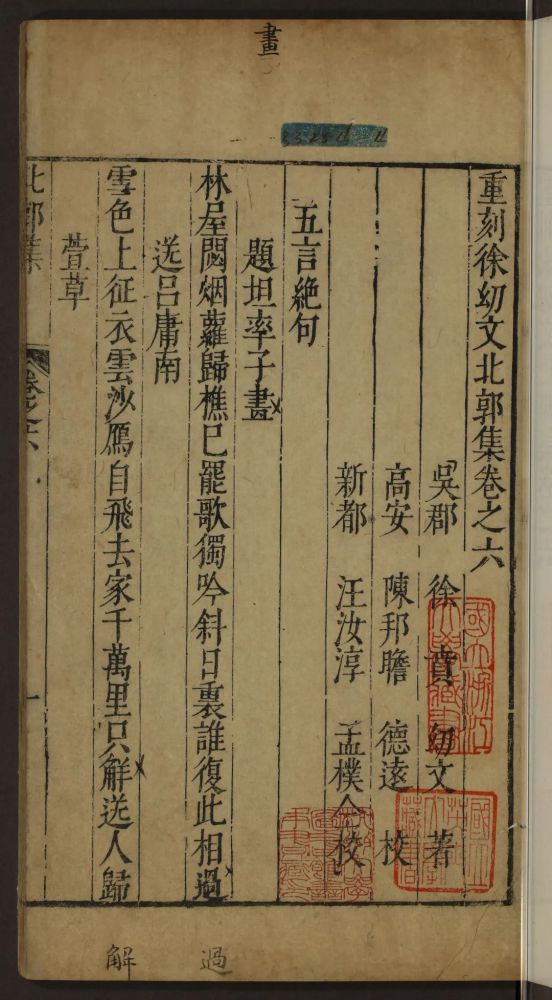 畫
重刻徐幼文北郭集卷之六
吳郡 徐賁 幼文 著
高安 陳邦瞻 德遠 校
新都 汪汝淳 孟樸 仝校
五言絕句
題坦率子畫
林屋閟烟蘿歸樵巳罷歌獨吟斜日裏誰復此相過
送呂庸南
雪色上征衣雲沙鴈自飛去家千萬里只解送人歸
萱草
北郭集 卷之六 一
過
解